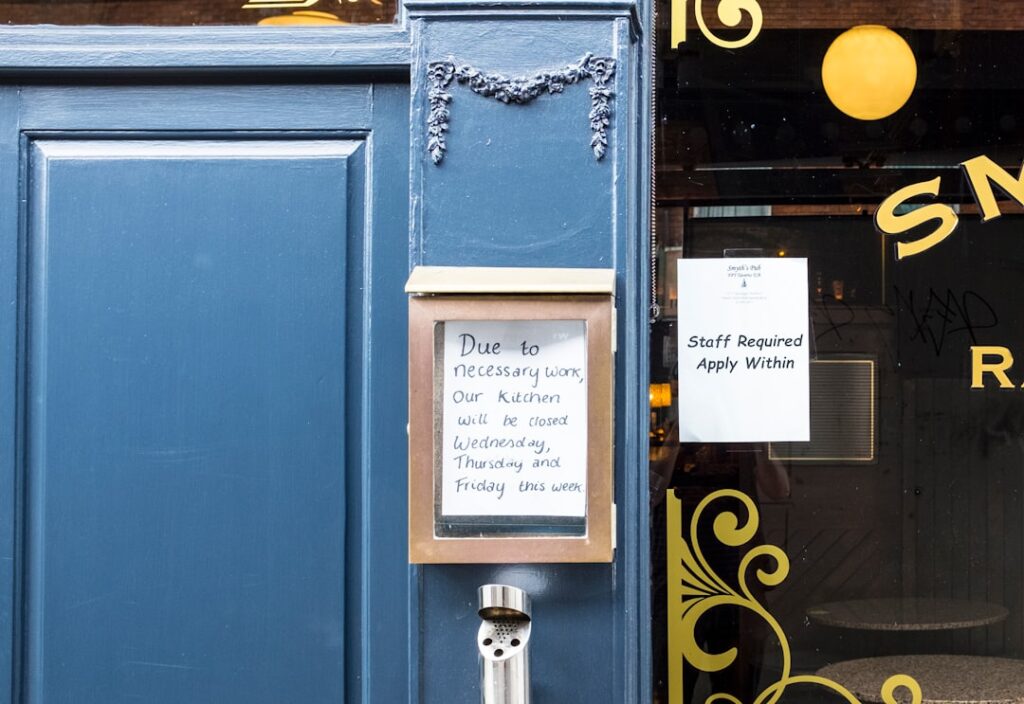 Due to
necessary work,
Our Kitchen
will be closed
Wednesday,
Thursday and
Friday this week.
Smyth's Pub
Staff Required
Apply Within
SM
RA